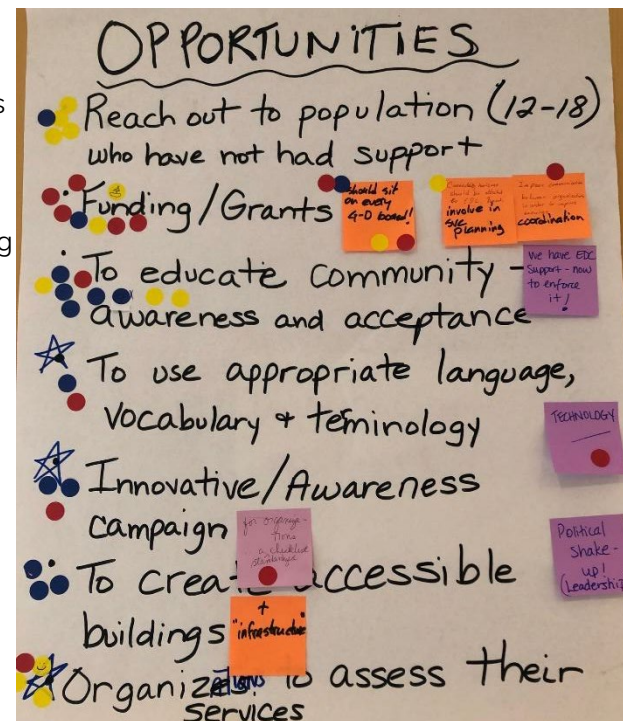 s
g
OPPORTUNITIES
Reach out to population (12-18)
who have not had support
Funding/Grants
should sit
on every
4-D board!
involve in
svc
planning
coordination
To educate community -
awareness and acceptance
We have EDC
support - now
to enforce
it!
To use appropriate language,
vocabulary + teminology
TECHNOLOGY
Innovative/Awareness
campaign
for organiza-
tions
a checklist
Political
shake-
up!
(Leadership
To create accessible
buildings
+
"infrastructure"
Organizations to assess their
services